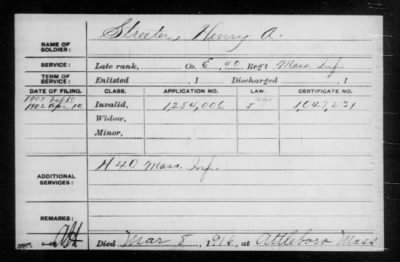 NAME OF SOLDIER: Streeter, Henry A.
SERVICE: Late rank, Co. E, 40 Reg't Mass. Inf.
TERM OF SERVICE: Enlisted , 1 Discharged , 1
DATE OF FILING. CLASS. APPLICATION NO. LAW. CERTIFICATE NO.
1902 Apr 10 Invalid, 1284,006 1,047,231
Widow,
Minor,
ADDITIONAL SERVICES: H 40 Mass. Inf.
REMARKS:
Died Mar 5, 1916, at Attleboro Mass